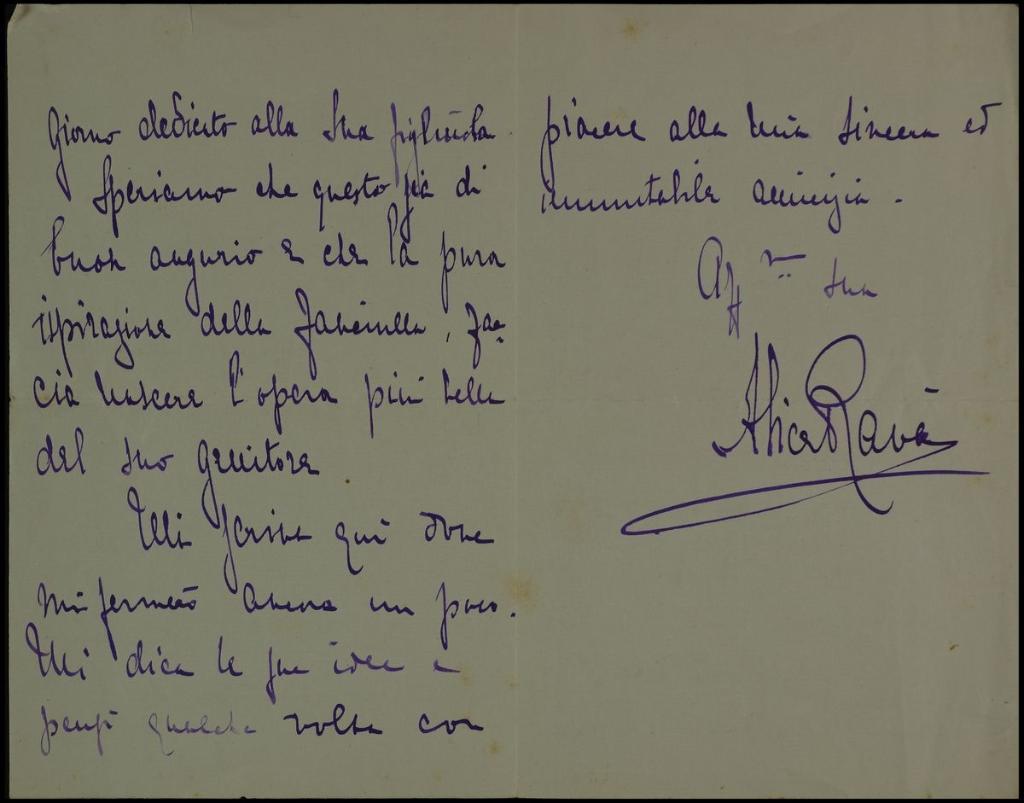 giorno dedicato alla Sua figliuola.
Speriamo che questo sia di
buon augurio e che la pura
ispirazione della fanciulla, fac=
cia nascere l'opera più bella
del suo genitore
Mi scriva qui dove
mi fermerò ancora un poco.
Mi dica le sue idee e
pensi qualche volta con
piacere alla mia sincera ed
immutabile amicizia.
Aff ma sua
Alice Ravà